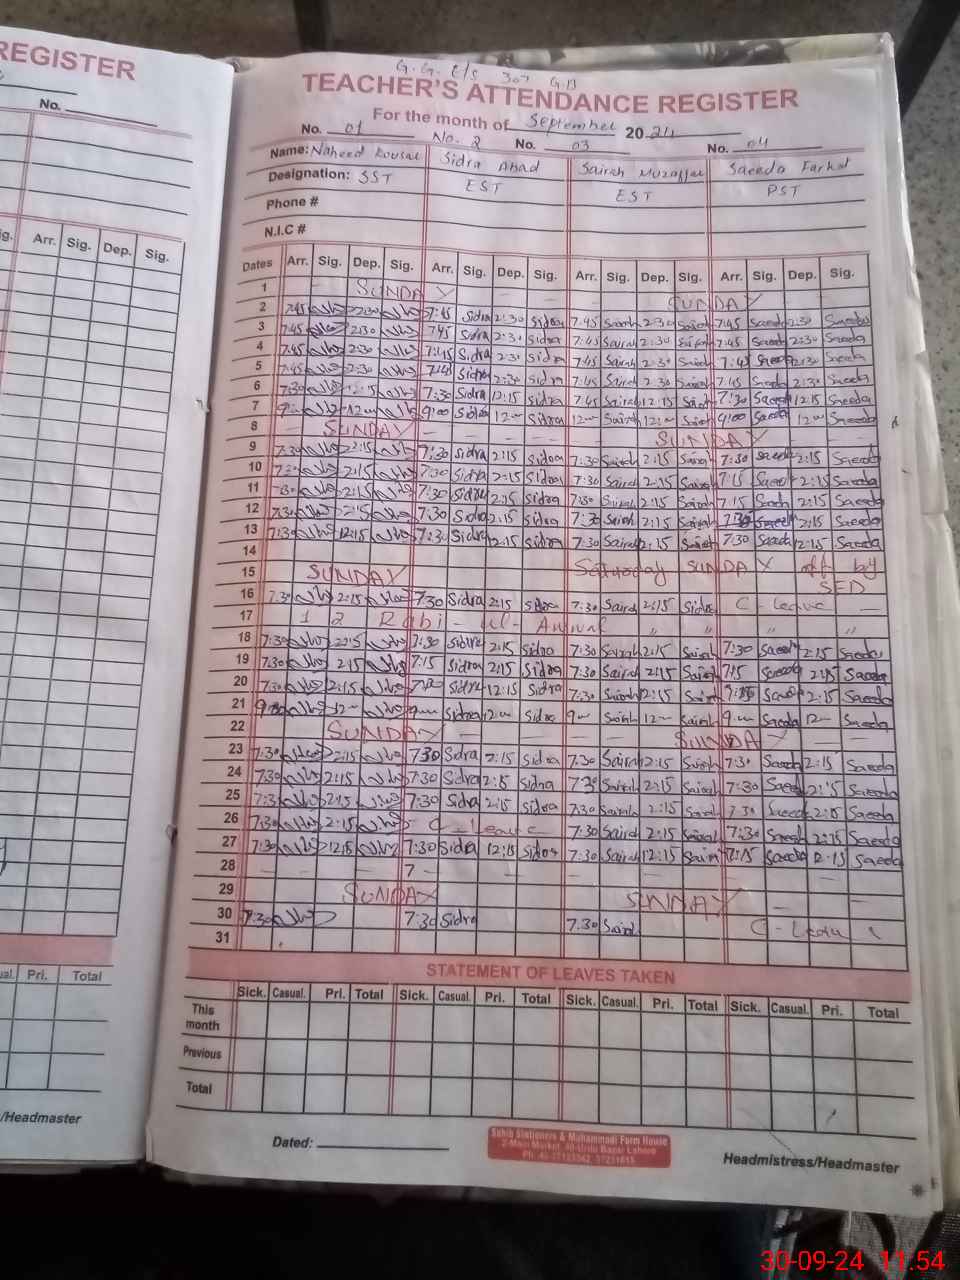 REGISTER
No.
Arr. Sig. Dep. Sig.
Pri. Total
/Headmaster
G.G. E/S 307 G.B
TEACHER'S ATTENDANCE REGISTER
For the month of September 2024
No. 01 No. 2 No. 03 No. 04
Name: Naheed Kousar Sidra Ahad Sairah Muzaffar Saeeda Farhat
Designation: SST EST EST PST
Phone #
N.I.C #
Dates Arr. Sig. Dep. Sig. Arr. Sig. Dep. Sig. Arr. Sig. Dep. Sig. Arr. Sig. Dep. Sig.
1 SUNDAY SUNDAY
2 7:45 2:30 7:45 Sidra 2:30 Sidra 7:45 Sairah 2:30 Sairah 7:45 Saeeda 2:30 Saeeda
3 7:45 2:30 7:45 Sidra 2:30 Sidra 7:45 Sairah 2:30 Sairah 7:45 Saeeda 2:30 Saeeda
4 7:45 2:30 7:45 Sidra 2:30 Sidra 7:45 Sairah 2:30 Sairah 7:45 Saeeda 2:30 Saeeda
5 7:45 2:30 7:45 Sidra 2:30 Sidra 7:45 Sairah 2:30 Sairah 7:45 Saeeda 2:30 Saeeda
6 7:30 12:15 7:30 Sidra 12:15 Sidra 7:45 Sairah 12:15 Sairah 7:30 Saeeda 12:15 Saeeda
7 12 9:00 Sidra 12 Sidra Sairah 12 Sairah 9:00 Saeeda 12 Saeeda
8 SUNDAY SUNDAY
9 7:30 2:15 7:30 Sidra 2:15 Sidra 7:30 Sairah 2:15 Sairah 7:30 Saeeda 2:15 Saeeda
10 7:30 2:15 7:30 Sidra 2:15 Sidra 7:30 Sairah 2:15 Sairah 7:15 Saeeda 2:15 Saeeda
11 7:30 2:15 7:30 Sidra 2:15 Sidra 7:30 Sairah 2:15 Sairah 7:15 Saeeda 2:15 Saeeda
12 7:30 2:15 7:30 Sidra 2:15 Sidra 7:30 Sairah 2:15 Sairah 7:30 Saeeda 2:15 Saeeda
13 7:30 12:15 7:30 Sidra 2:15 Sidra 7:30 Sairah 2:15 Sairah 7:30 Saeeda 12:15 Saeeda
14 Saturday off by SED
15 SUNDAY SUNDAY
16 7:30 2:15 7:30 Sidra 2:15 Sidra 7:30 Sairah 2:15 Sidra C-Leave
17 12 Rabi-ul-Awwal " " " "
18 7:30 2:15 7:30 Sidra 2:15 Sidra 7:30 Sairah 2:15 Sairah 7:30 Saeeda 2:15 Saeeda
19 7:30 2:15 7:15 Sidra 2:15 Sidra 7:30 Sairah 2:15 Sairah 7:15 Saeeda 2:15 Saeeda
20 7:30 12:15 Sidra 12:15 Sidra 7:30 Sairah 12:15 Sairah Saeeda 2:15 Saeeda
21 12 Sidra 12 Sidra 9 Sairah 12 Sairah 9 Saeeda 12 Saeeda
22 SUNDAY SUNDAY
23 7:30 2:15 7:30 Sidra 2:15 Sidra 7:30 Sairah 2:15 Sairah 7:30 Saeeda 2:15 Saeeda
24 7:30 2:15 7:30 Sidra 2:15 Sidra 7:30 Sairah 2:15 Sairah 7:30 Saeeda 2:15 Saeeda
25 7:30 2:15 7:30 Sidra 2:15 Sidra 7:30 Sairah 2:15 Sairah 7:30 Saeeda 2:15 Saeeda
26 7:30 2:15 C-Leave 7:30 Sairah 2:15 Sairah 7:30 Saeeda 2:15 Saeeda
27 7:30 12:15 7:30 Sidra 12:15 Sidra 7:30 Sairah 12:15 Sairah 7:15 Saeeda 12:15 Saeeda
28
29 SUNDAY SUNDAY
30 7:30 7:30 Sidra 7:30 Sairah C-Leave
31
STATEMENT OF LEAVES TAKEN
Sick. Casual. Pri. Total Sick. Casual. Pri. Total Sick. Casual. Pri. Total Sick. Casual. Pri. Total
This month
Previous
Total
Dated:
Sahib Stationers & Muhammadi Form House
2-Main Market, 40-Urdu Bazar Lahore
Headmistress/Headmaster
30-09-24 11.54